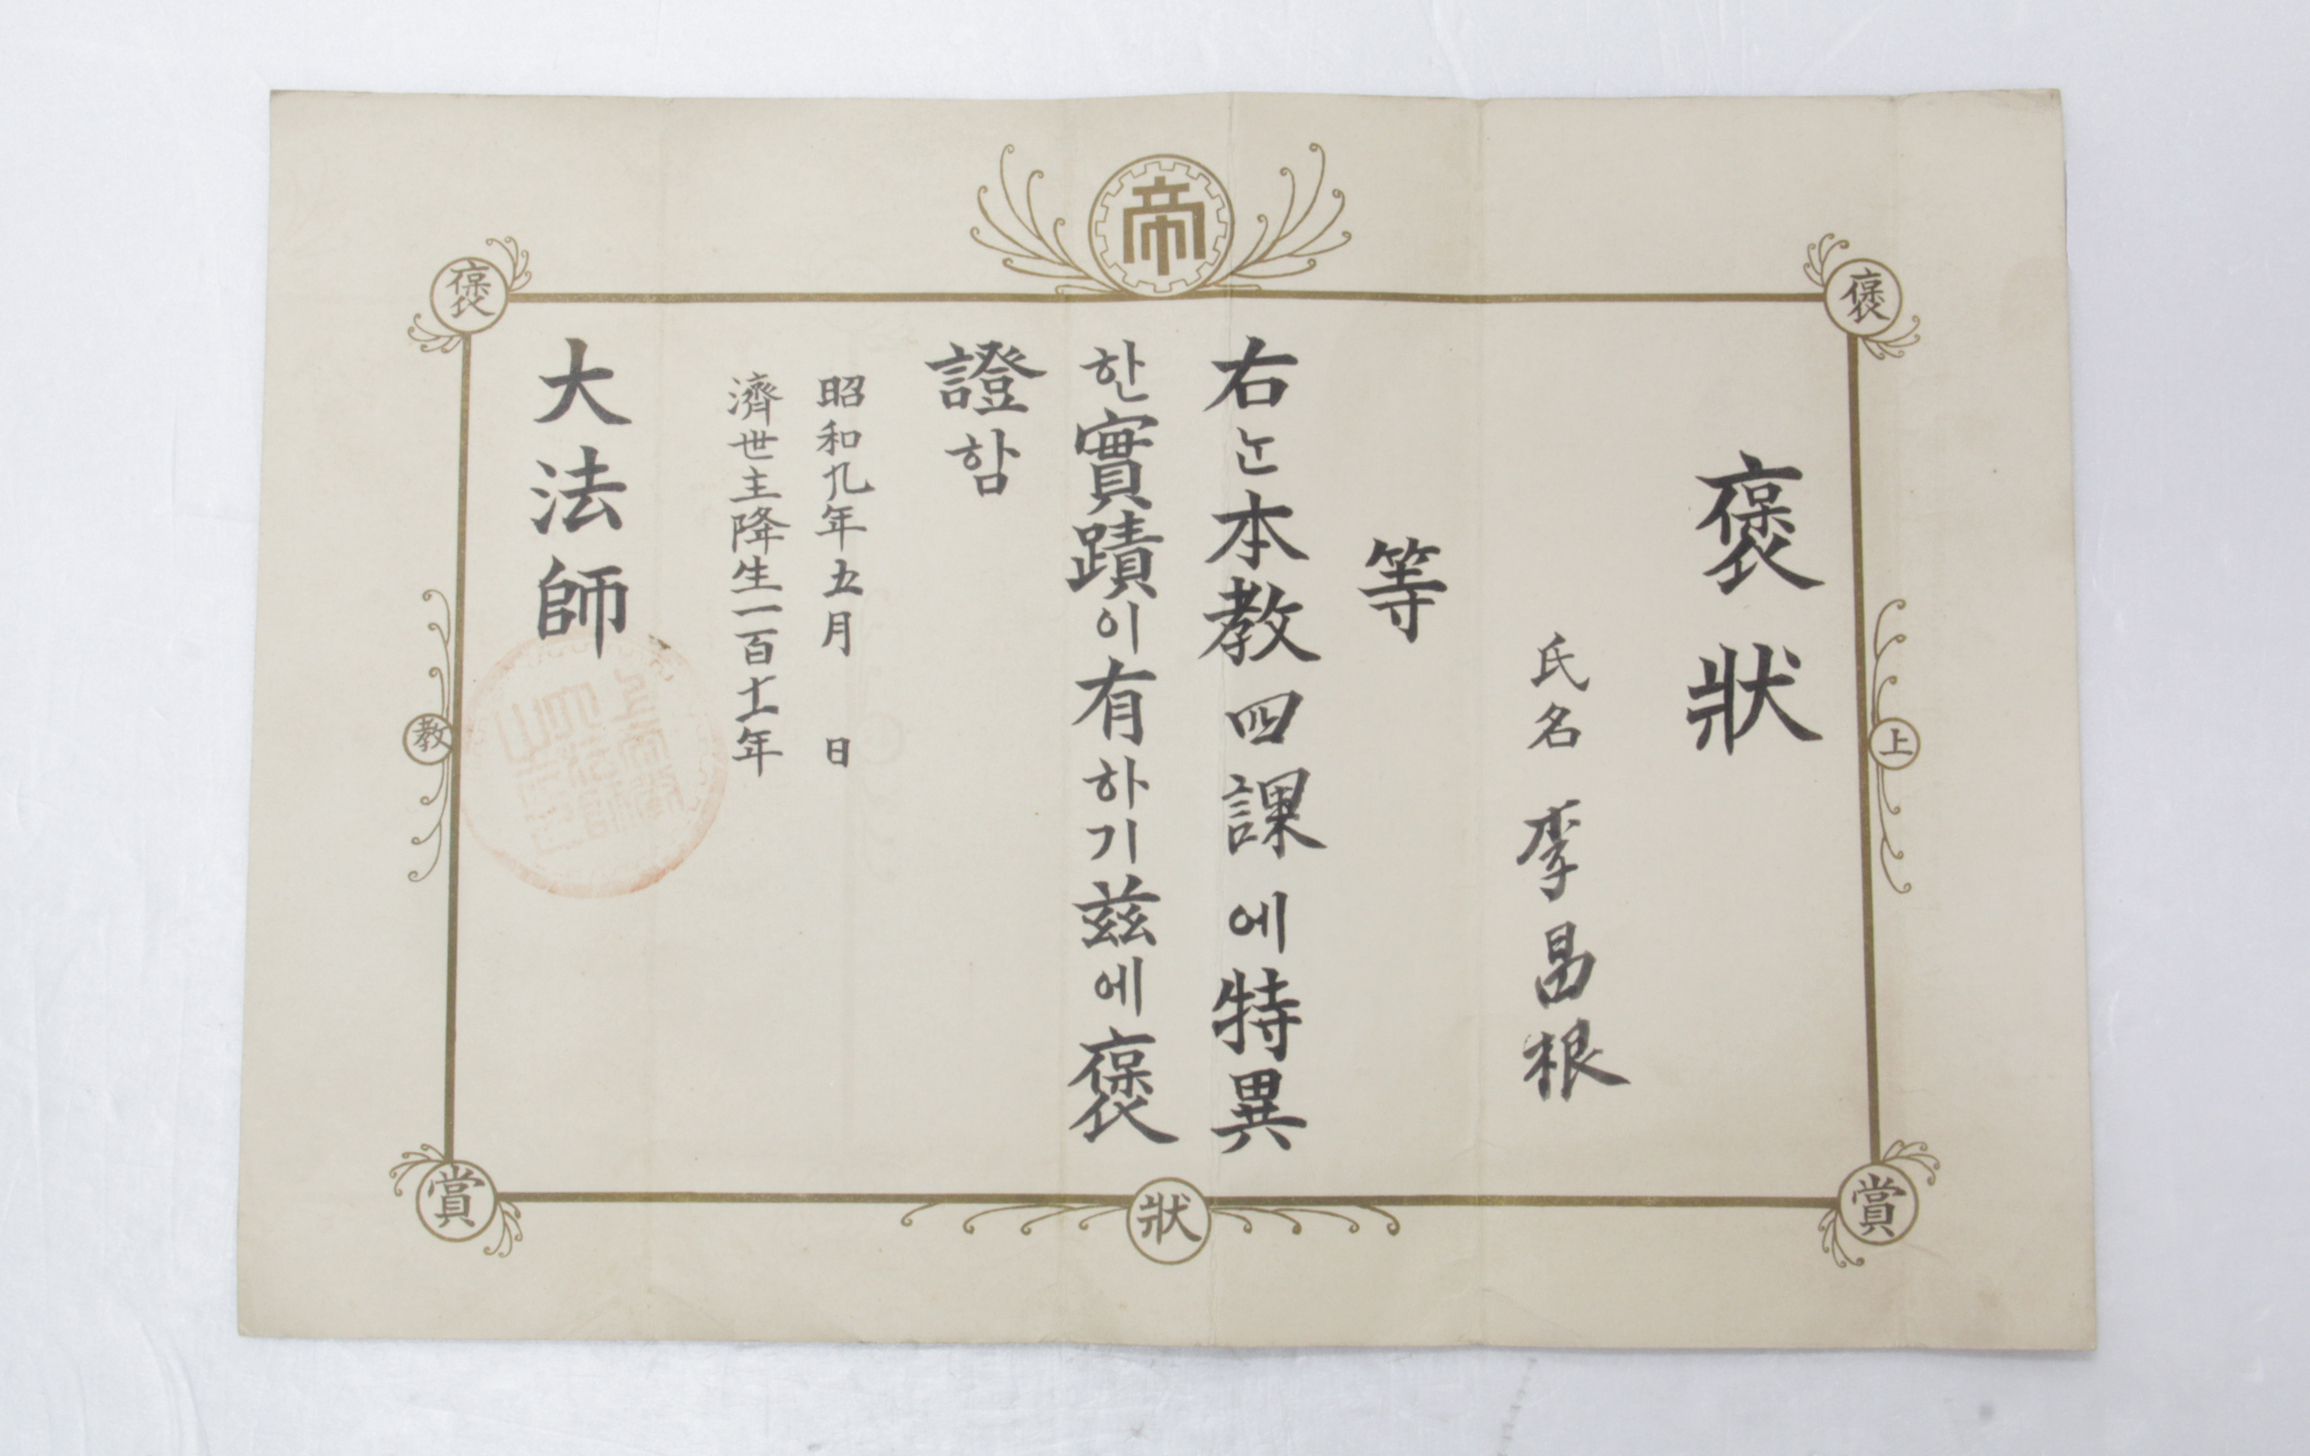 帝
褒
褒
上
教
賞
狀
賞
褒狀
氏名 李昌根
等
右는本教四課에特異
한實蹟이有하기玆에褒
證함
昭和九年五月 日
濟世主降生一百十一年
大法師